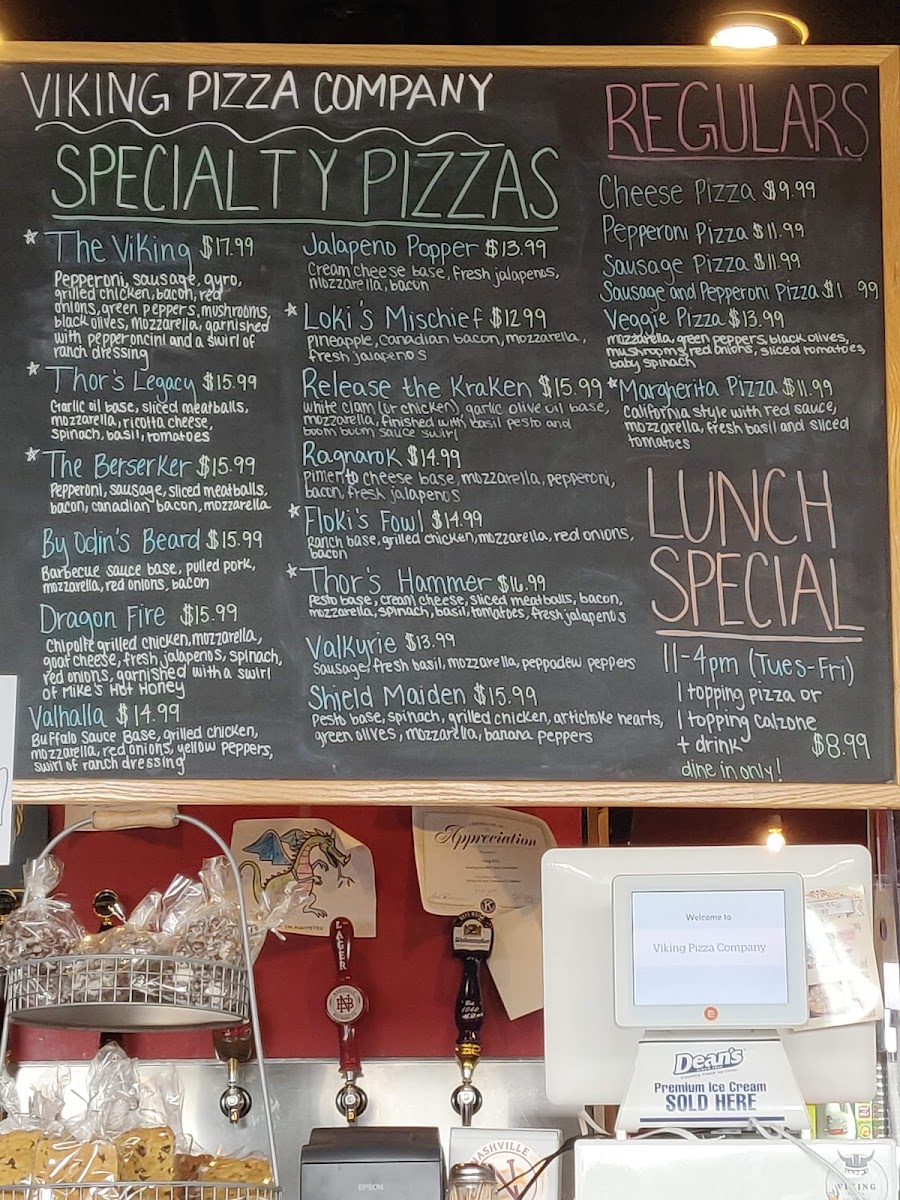 VIKING PIZZA COMPANY
SPECIALTY PIZZAS
The Viking $17.99
Pepperoni, sausage, gyro,
grilled chicken, bacon, red
onions, green peppers, mushrooms,
black olives, mozzarella, garnished
with pepperoncini and a swirl of
ranch dressing
Thor's Legacy $15.99
Garlic oil base, sliced meatballs,
mozzarella, ricotta cheese,
spinach, basil, tomatoes
The Berserker $15.99
Pepperoni, sausage, sliced meatballs,
bacon, canadian bacon, mozzarella
By Odin's Beard $15.99
Barbecue sauce base, pulled pork,
mozzarella, red onions, bacon
Dragon Fire $15.99
Chipolte grilled chicken, mozzarella,
goat cheese, fresh jalapenos, spinach,
red onions, garnished with a swirl
of Mike's Hot Honey
Valhalla $14.99
Buffalo Sauce Base, grilled chicken,
mozzarella, red onions, yellow peppers,
swirl of ranch dressing
Jalapeno Popper $13.99
Cream cheese base, fresh jalapenos,
mozzarella, bacon
Loki's Mischief $12.99
pineapple, canadian bacon, mozzarella,
fresh jalapenos
Release the Kraken $15.99
white clam (or chicken), garlic olive oil base,
mozzarella, finished with basil pesto and
boom bum sauce swirl
Ragnarok $14.99
Pimento cheese base, mozzarella, pepperoni,
bacon, fresh jalapenos
Floki's Fowl $14.99
Ranch base, grilled chicken, mozzarella, red onions,
bacon
Thor's Hammer $16.99
Pesto base, cream cheese, sliced meatballs, bacon,
mozzarella, spinach, basil, tomatoes, fresh jalapenos
Valkyrie $13.99
Sausage, fresh basil, mozzarella, peppadew peppers
Shield Maiden $15.99
Pesto base, spinach, grilled chicken, artichoke hearts,
green olives, mozzarella, banana peppers
REGULARS
Cheese Pizza $9.99
Pepperoni Pizza $11.99
Sausage Pizza $11.99
Sausage and Pepperoni Pizza $1 99
Veggie Pizza $13.99
mozzarella, green peppers, black olives,
mushrooms, red onions, sliced tomatoes,
baby spinach
Margherita Pizza $11.99
California style with red sauce,
mozzarella, fresh basil and sliced
tomatoes
LUNCH
SPECIAL
11-4pm (Tues-Fri)
1 topping pizza or
1 topping calzone
+ drink $8.99
dine in only!
Appreciation
LAGER
Welcome to
Viking Pizza Company
Dean's
Premium Ice Cream
SOLD HERE
EPSON
NASHVILLE
VIKING